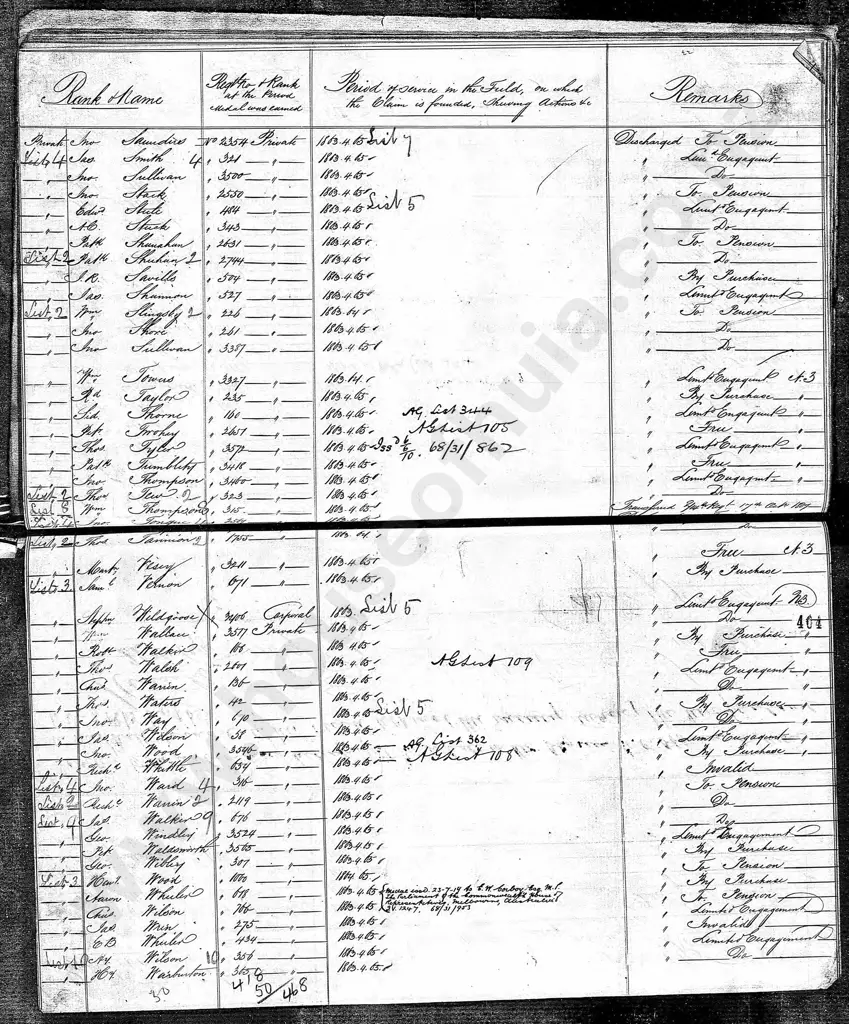 Rank & Name Regtl No & Rank at the Period Medal was earned Period of service in the Field, on which the Claim is founded, Shewing Actions &c Remarks
Private Jno Saunders No 2354 Private 1863.4.65 List 7 Discharged To Pension
List 4 Jas Smith 4 " 321 " 1863.4.65 " Limt Engagemt
" Jno Sullivan " 3500 " 1863.4.65 " Do
" Jno Stack " 2550 " 1863.4.65 " To Pension
" Edwd Stute " 484 " 1863.4.65 List 5 " Limt Engagemt
" " 343 " 1863.4.65 " Do
" Patk Shanahan " 2631 " 1863.4.65 " To Pension
List 2 Patk Shehan 2 " 2744 " 1863.4.65 " Do
" J.R. Saville " 504 " 1863.4.65 " By Purchase
" Jas Shannon " 527 " 1863.4.65 " Limt Engagemt
List 2 Wm Slingsby 2 " 226 " 1863.64 " To Pension
" Jno Shore " 261 " 1863.4.65 " Do
" Jno Sullivan " 3357 " 1863.4.65 " Do
" Wm Towers " 3327 " 1863.64 " Limt Engagemt N.3
" Rd Taylor " 235 " 1863.4.65 " By Purchase
" Sid. Thorne " 160 " 1863.4.65 AG. List 344 " Limt Engagemt
" Pat Twohey " 2657 " 1863.4.65 AG List 105 " Free
" Thos Tyler " 3572 " 1863.4.65 68/31/862 " Limt Engagemt
" Patk Tumblety " 3418 " 1863.4.65 " Free
" Jno Thompson " 3460 " 1863.4.65 " Limt Engagemt
List 2 Thos Tew 2 " 323 " 1863.4.65 " Do
List 8 Wm Thompson 8 " 315 " 1863.4.65 Transferred
List 2 Thos 2 " 1755 " 1863.64 " Do
" Mark Vesey " 3211 " 1863.4.65 " Free N.3
List 3 Saml Vernon " 671 " 1863.4.65 " By Purchase
" Stephn Wildgoose X " 3406 Corporal 1863. List 5 " Limt Engagemt N3
" Wm Wallace " 3577 Private 1863.4.65 " Do 404
" Robt Walker " 108 " 1863.4.65 " By Purchase
" Thos Walsh " 1863.4.65 AG List 109 " Free
" Chas Warren " 136 " 1863.4.65 " Limt Engagemt
" Thos Waters " 42 " 1863.4.65 " Do
" Jno Way " 610 " 1863.4.65 List 5 " By Purchase
" Jas Wilson " 58 " 1863.4.65 " Do
" Jno Wood " 3546 " 1863.4.65 AG List 362 " Limt Engagemt
" Richd Whittle " 634 " 1863.4.65 AG List 108 " By Purchase
List 4 Jno Ward 4 " 316 " 1863.4.65 " Invalid
List 2 Richd Warrin 2 " 2119 " 1863.4.65 " To Pension
List 9 Jas Walker 9 " 676 " 1863.4.65 " Do
" Geo. Windley " 3524 " 1863.4.65 " Do
" Pat Waldsworth " 3565 " 1863.4.65 " Limt Engagement
" Geo. Wibley " 307 " 1863.4.65 " By Purchase
List 3 Heny Wood " 100 " 1864.65 " To Pension
" Aaron Wheeler " 618 " 1863.4.65 Medal issd. 23-7-14 to E.W. Corboy Esq. M.P. " By Purchase
the Parliament of the Commonwealth House of
" Chas Wilson " 766 " 1863.4.65 Representatives, Melbourne, Australia " To Pension
24.1347. 68/31/953
" Jas Wren " 275 " 1863.4.65 " Limited Engagement
" Wheeler " 434 " 1863.4.65 " Invalid
List 10 Wilson 10 " 356 " 1863.4.65 " Limited Engagement
" Hy Warburton " 365 " 1863.4.65 " Do
30 418
50/468